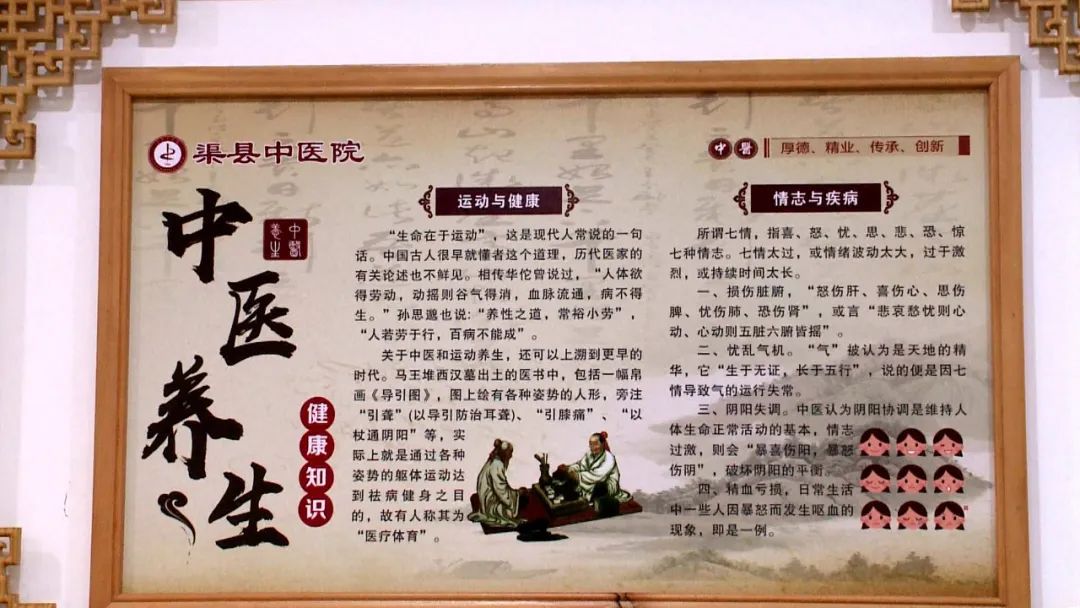 渠县中医院
中醫
厚德、精业、传承、创新
中医养生
中醫
养生
健康知识
运动与健康
“生命在于运动”，这是现代人常说的一句
话。中国古人很早就懂者这个道理，历代医家的
有关论述也不鲜见。相传华佗曾说过，“人体欲
得劳动，动摇则谷气得消，血脉流通，病不得
生。”孙思邈也说:“养性之道，常裕小劳”，
“人若劳于行，百病不能成”。
关于中医和运动养生，还可以上溯到更早的
时代。马王堆西汉墓出土的医书中，包括一幅帛
画《导引图》，图上绘有各种姿势的人形，旁注
“引聋”(以导引防治耳聋)、“引膝痛”、“以
杖通阴阳”等，实
际上就是通过各种
姿势的躯体运动达
到祛病健身之目
的，故有人称其为
“医疗体育”。
情志与疾病
所谓七情，指喜、怒、忧、思、悲、恐、惊
七种情志。七情太过，或情绪波动太大，过于激
烈，或持续时间太长。
一、损伤脏腑，“怒伤肝、喜伤心、思伤
脾、忧伤肺、恐伤肾”，或言“悲哀愁忧则心
动、心动则五脏六腑皆摇”。
二、忧乱气机。“气”被认为是天地的精
华，它“生于无证，长于五行”，说的便是因七
情导致气的运行失常。
三、阴阳失调。中医认为阴阳协调是维持人
体生命正常活动的基本，情志
过激，则会“暴喜伤阳，暴怒
伤阴”，破坏阴阳的平衡。
四、精血亏损，日常生活
中一些人因暴怒而发生呕血的
现象，即是一例。